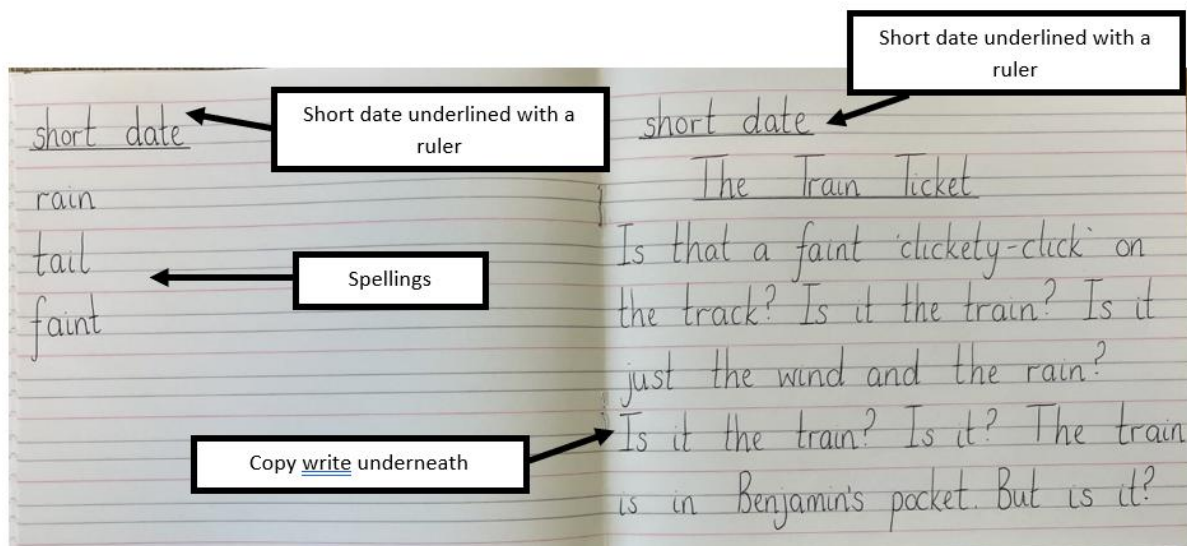 Short date underlined with a
ruler
short date
Short date underlined with a
ruler
rain
tail
Spellings
faint
Copy write underneath
short date
The Train Ticket
Is that a faint 'clickety-click' on
the track? Is it the train? Is it
just the wind and the rain?
Is it the train? Is it? The train
is in Benjamin's pocket. But is it?